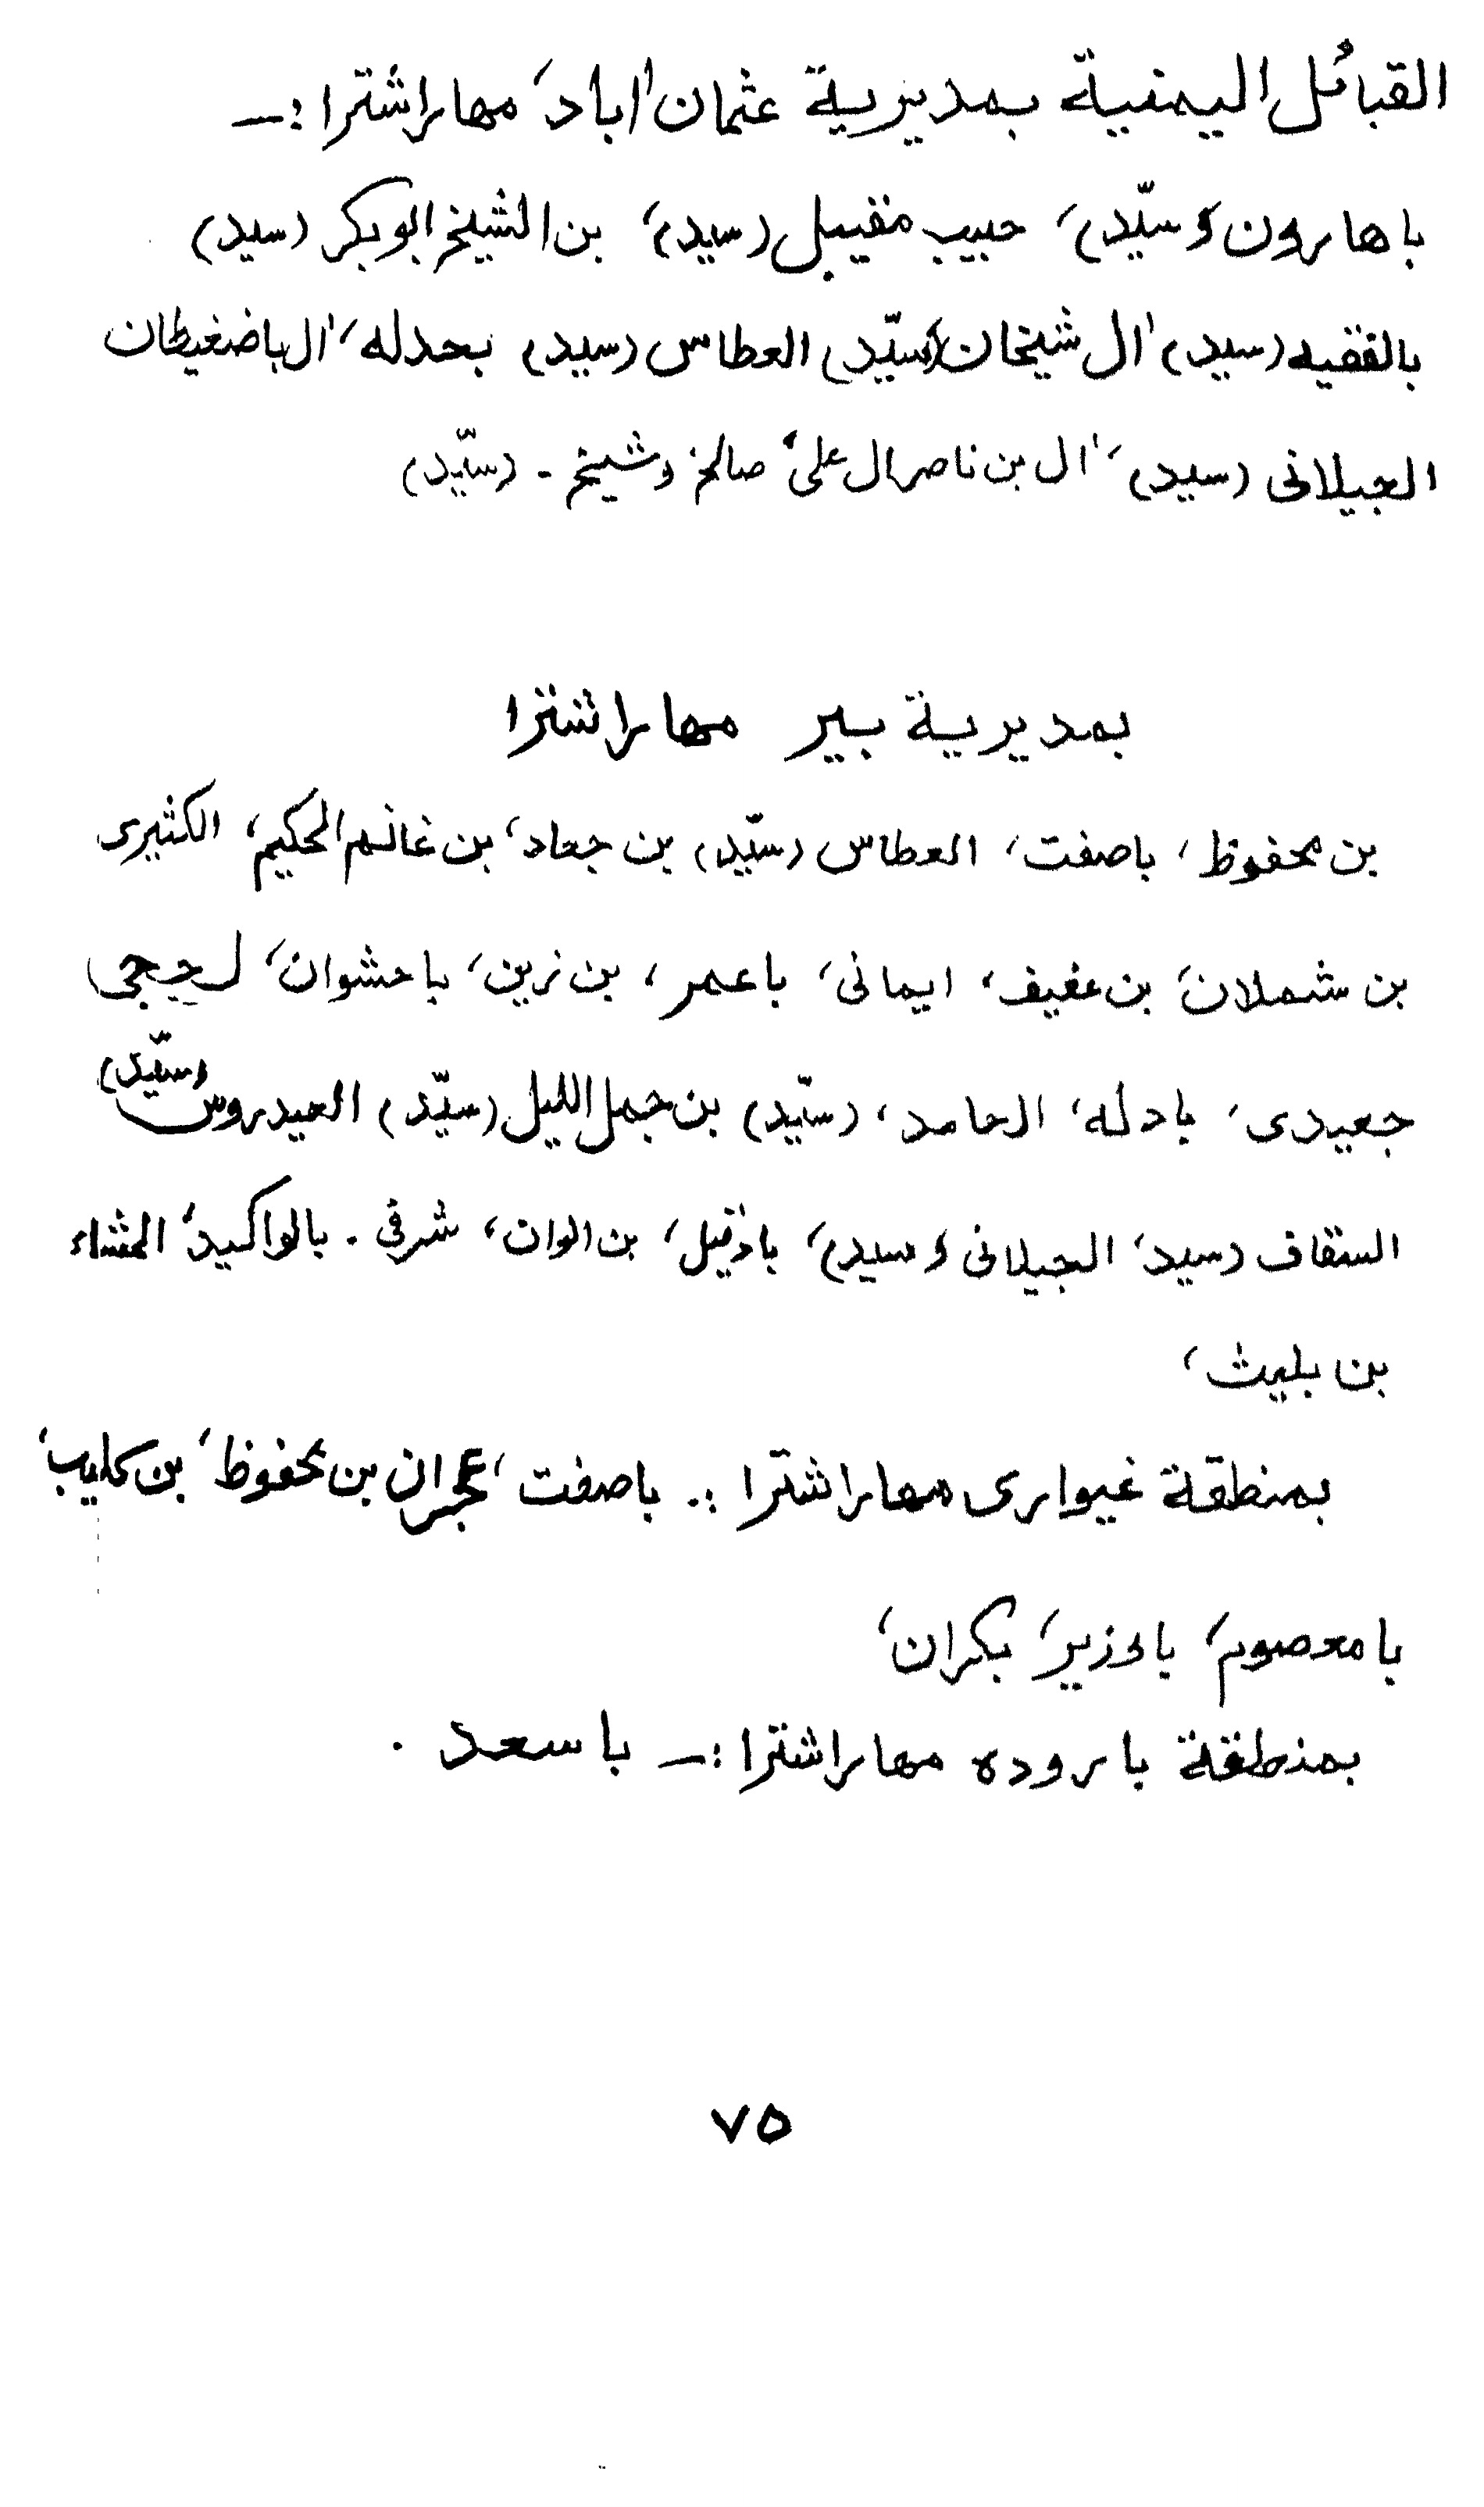 القبائل اليمنية بمديرية عثمان اباد، مهاراشترا :ـ
باهارون (سيّد)، حبيب مقيبل (سيد)، بن الشيخ ابوبكر (سيد)
بالفقيه (سيد) ال شيخان (سيّد) العطاس (سيد) بحدله، ال باضغيطان
الجيلانى (سيد)، ال بن ناصر ال على، صالح وشيخ - (سيّد)
بمديرية بير مهاراشترا
بن محفوظ، باصفت، العطاس (سيّد) بن جعاد، بن غانم الحكيم، الكثيرى
بن شملان، بن عفيف، ايمانى، باعمر، بن زين، باحشوان،
جعيدى، بادله، الحامد، (سيّد) بن جمل الليل (سيّد) العيدروس (سيّد)
السقاف (سيد، الجيلانى (سيد)، باذقيل، بن الوان، شرفى - بالواكيد،
بن بليث،
بمنطقة غيوارى مهاراشترا :. باصفت، عجران بن محفوظ، بن كليب،
بامعصوم، باوزير، بكران،
بمنطقة باروده مهاراشترا :ـ باسعد .
٧٥